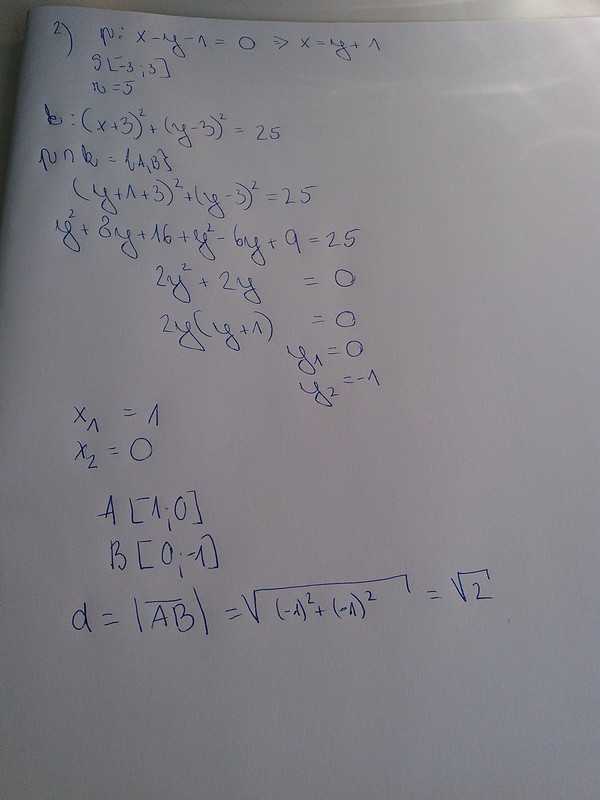 2) p: x-y-1=0 => x=y+1
S[-3;3]
r=5
k: (x+3)²+(y-3)² = 25
p∩k = {A,B}
(y+1+3)²+(y-3)²=25
y²+8y+16+y²-6y+9=25
2y²+2y = 0
2y(y+1) = 0
y₁=0
y₂=-1
x₁ = 1
x₂ = 0
A[1;0]
B[0;-1]
d = |AB| = √((-1)²+(-1)²) = √2